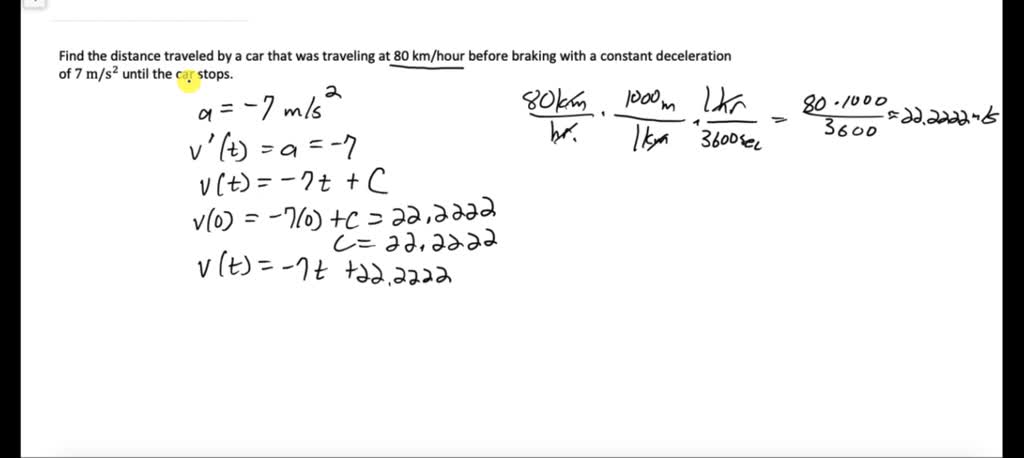 Find the distance traveled by a car that was traveling at 80 km/hour before braking with a constant deceleration
of 7 m/s² until the car stops.
a = -7 m/s²
v'(t) = a = -7
v(t) = -7t + C
v(0) = -7(0) + C = 22.2222
C = 22.2222
v(t) = -7t + 22.2222
80km/hr. · 1000m/1km · 1hr/3600sec = 80·1000/3600 = 22.2222 m/s